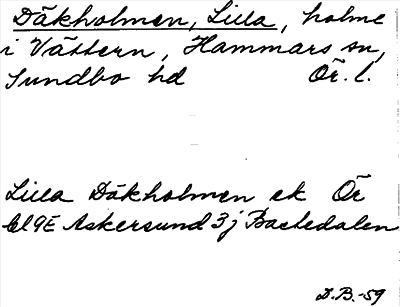 Däkholmen, Lilla, holme
i Vättern, Hammars sn,
Sundbo hd Ör. l.
Lilla Däkholmen ek Ör
bl 9E Askersund 3 j Bastedalen
D.B.-59